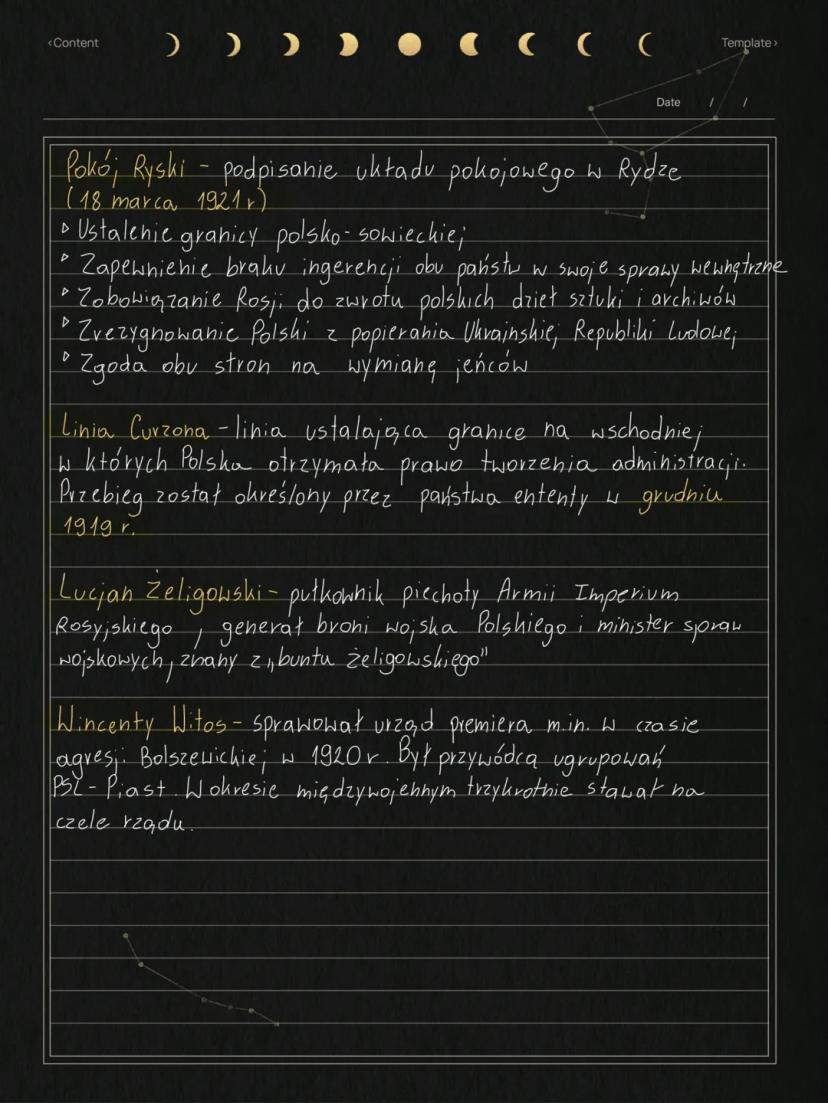 ‹Content
Template›
Date / /
Pokój Ryski - podpisanie układu pokojowego w Rydze
(18 marca 1921r)
▹ Ustalenie granicy polsko-sowieckiej
▹ Zapewnienie braku ingerencji obu państw w swoje sprawy wewnętrzne
▹ Zobowiązanie Rosji do zwrotu polskich dzieł sztuki i archiwów
▹ Zrezygnowanie Polski z popierania Ukraińskiej Republiki Ludowej
▹ Zgoda obu stron na wymianę jeńców
Linia Curzona - linia ustalająca granice na wschodniej
w których Polska otrzymała prawo tworzenia administracji.
Przebieg został określony przez państwa ententy w grudniu
1919 r.
Lucjan Żeligowski - pułkownik piechoty Armii Imperium
Rosyjskiego , generał broni wojska Polskiego i minister spraw
wojskowych, znany z „buntu żeligowskiego"
Wincenty Witos - sprawował urząd premiera m.in. w czasie
agresji Bolszewickiej w 1920r. Był przywódcą ugrupowań
PSL - Piast. W okresie międzywojennym trzykrotnie stawał na
czele rządu.